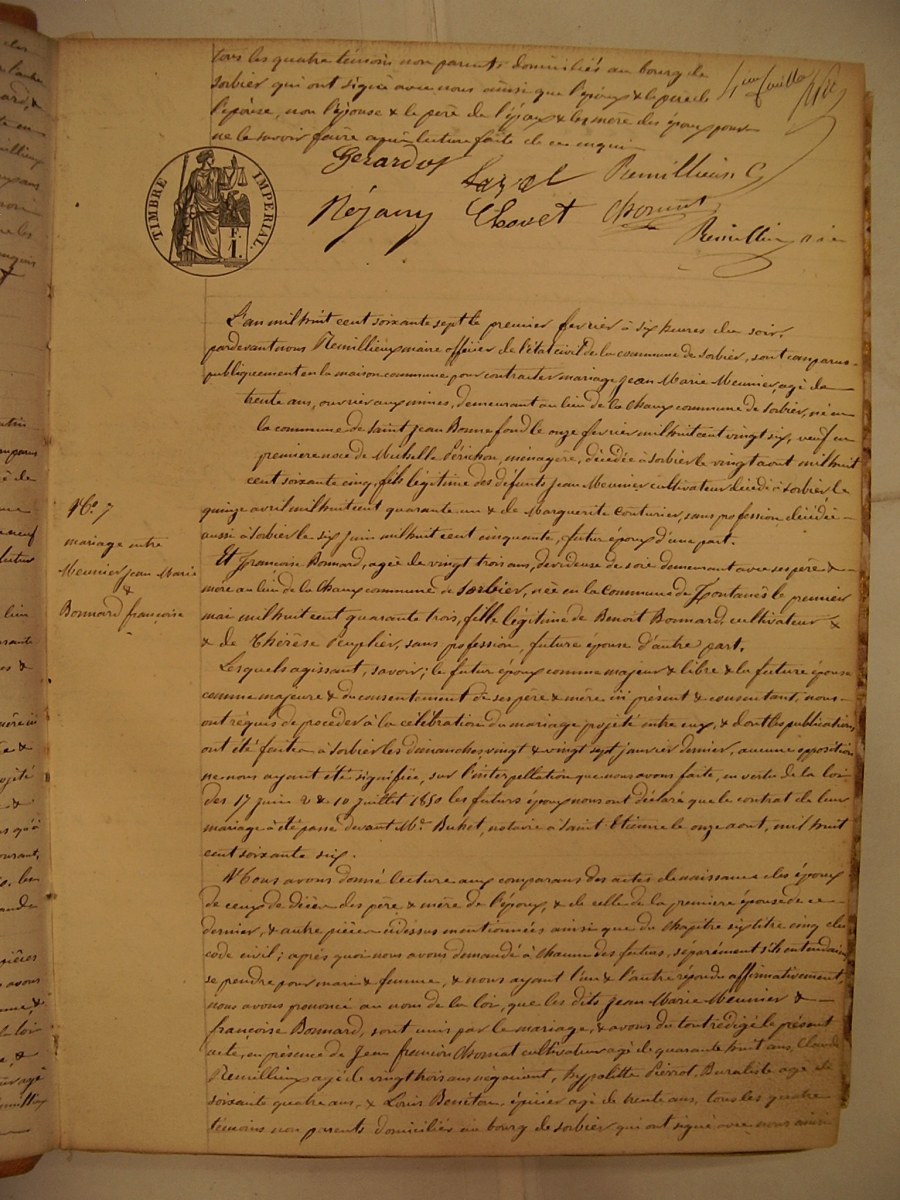 tous les quatre témoins non parents domiciliés au bourg de
sorbier qui ont signé avec nous ainsi que l'époux & le père de
l'épouse, non l'épouse & le père de l'époux & les mère des époux pour
ne le savoir faire après lecture faite de ce enquis
Gerardot
Remillieux C
Chovet
Chomat
Remillieux maire
TIMBRE IMPERIAL
1 F.
L'an mil huit cent soixante sept le premier fevrier à six heures du soir,
pardevant nous Remillieux maire officier de l'état civil de la commune de Sorbier, sont comparus
publiquement en la maison commune pour contracter mariage Jean Marie Meunier, agé de
trente ans, ouvrier aux mines, demeurant au lieu de la Chaux commune de Sorbier, né en
la commune de Saint Jean Bonnefond le onze fevrier mil huit cent vingt six, veuf en
première noce de Michelle Périchon, menagère, décédée à Sorbier le vingt aout mil huit
cent soixante cinq, fils légitime des défunts Jean Meunier cultivateur décédé à Sorbier le
quinze avril mil huit cent quarante un & de Marguerite Couturier, sans profession décédée
aussi à Sorbier le six juin mil huit cent cinquante, futur époux d'une part.
No. 7
mariage entre
Meunier Jean Marie
&
Bonnard françoise
Et françoise Bonnard, agée de vingt trois ans, devideuse de soie demeurant avec ses père &
mère au lieu de la Chaux commune de Sorbier, née en la commune de Fontanès le premier
mai mil huit cent quarante trois, fille légitime de Benoit Bonnard, cultivateur &
& de Thérèse Peuplier, sans pofession future épouse d'autre part.
Lesquels agissant, savoir; le futur époux comme majeur & libre & la future épouse
comme majeure & du consentement de ses père & mère ici présent & consentant, nous
ont réquis de procéder à la célébration du mariage projeté entre eux, & dont les publications
ont été faite à Sorbier les dimanches, vingt & vingt sept janvier dernier, aucune opposition
ne nous ayant été signifiée, sur l'interpellation que nous avons faite, en vertu de la loi
des 17 juin & 10 juillet 1850 les futurs époux nous ont déclaré que le contrat de leur
mariage à été passé devant Me. Buhet, notaire à Saint Etienne le onze aout, mil huit
cent soixante six.
Nous avons donné lecture aux comparans des actes de naissance des époux
de ceux de décès des père & mère de l'époux, & de celle de la première épouse de ce
dernier, & autre pièces cidessus mentionnées ainsi que du chapitre six titre cinq du
code civil; après quoi nous avons demandé à chacun des futurs, séparément s'ils entendaient
se prendre pour mari & femme, & nous ayant l'un & l'autre répondu affirmativement,
nous avons prononcé au nom de la loi, que les dits Jean Marie Meunier &
françoise Bonnard, sont unis par le mariage, & avons du tout rédigé le présent
acte, en présence de Jean françois Chomat cultivateur agé de quarante huit ans, Claude
Remillieux agé de vingt trois ans négociant, hyppolitte Pierrot, Buraliste agé de
soixante quatre ans & Louis Beneton, épicier agé de trente ans, tous les quatre
témoins non parents domiciliés au bourg de Sorbier qui ont signé avec nous ainsi